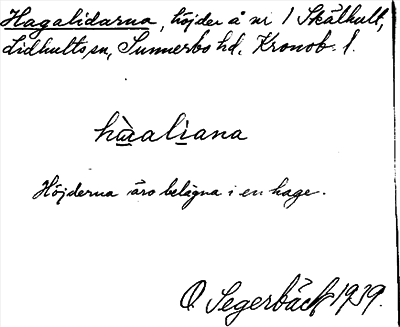 Hagalidarna, höjder å nr 1 Skälhult,
Lidhults sn, Sunnerbo hd. Kronob. l.
hùaliana
Höjderna äro belägna i en hage.
O Segerbäck 1939.